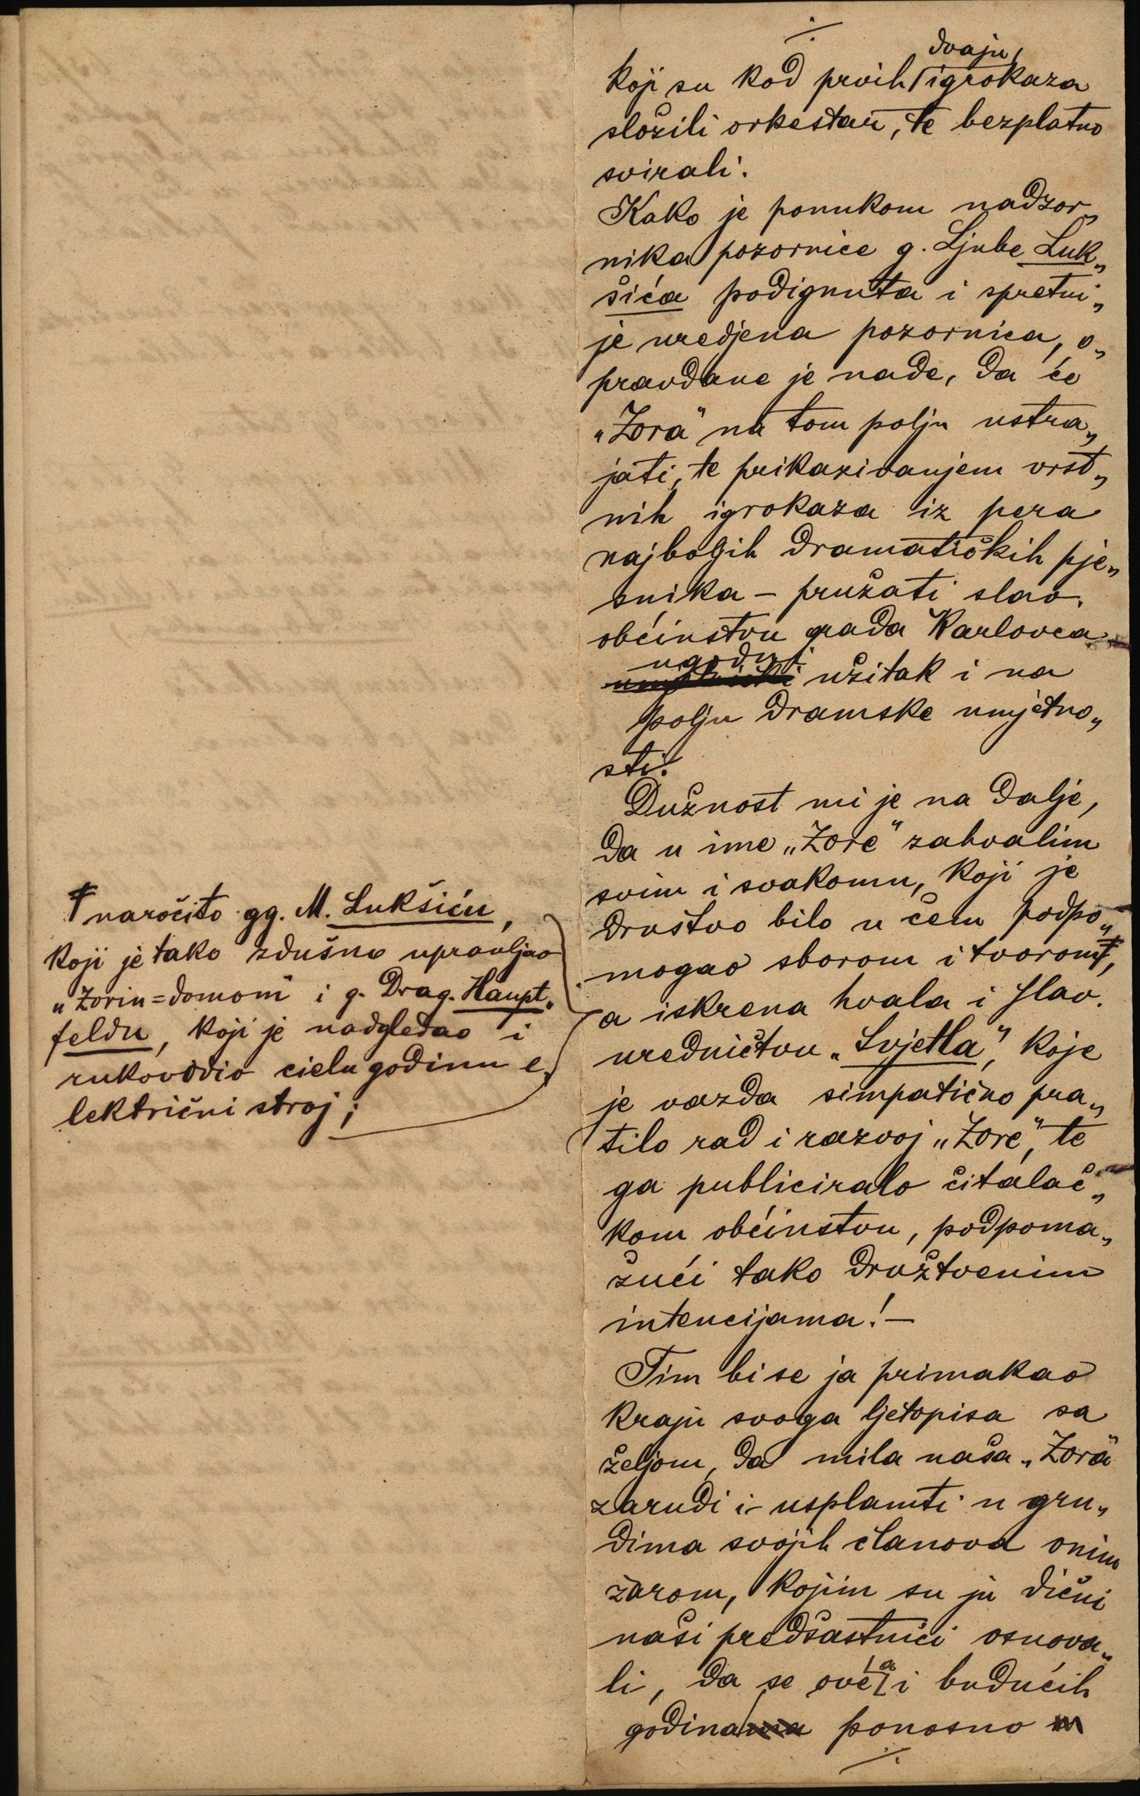 koji su kod prvih dvaju igrokaza
složili orkestar, te bezplatno
svirali.
Kako je ponukom nadzor„
nika pozornice g. Ljube Luk„
šića podignuta i spretni„
je uredjena pozornica, o„
pravdane je nade, da će
„Zora“ na tom polju ustra„
jati, te prikazivanjem vrst„
nih igrokaza iz pera
najboljih dramatičkih pje„
snika – pružati slav.
občinstvu grada Karlovca
ugodni užitak i na
polju dramske umjetno„
sti.
Dužnost mi je na dalje,
da u ime „Zore“ zahvalim
svim i svakomu, koji je
družtvo bilo u čem podpo„
mogao sborom i tvorom,
naročito gg. M. Lukšiću,
koji je tako zdušno upravljao
„Zorin=domom“ i g. Drag. Haupt„
feldu, koji je nadgledao i
rukovodio cielu godinu e„
lektrični stroj;
a iskrena hvala i slav.
uredničtvu „Svjetla“, koje
je vazda simpatično pra„
tilo rad i razvoj „Zore“, te
ga publiciralo čitalač„
kom občinstvu, podpoma„
žući tako družtvenim
intencijama! –
Tim bi se ja primakao
kraju svoga ljetopisa sa
željom, da mila naša „Zora“
zarudi i usplamti u gru„
dima svojih članova onim
žarom, kojim su ju dični
naši predšastnici osnova„
li, da se ove a i budućih
godina ponosno